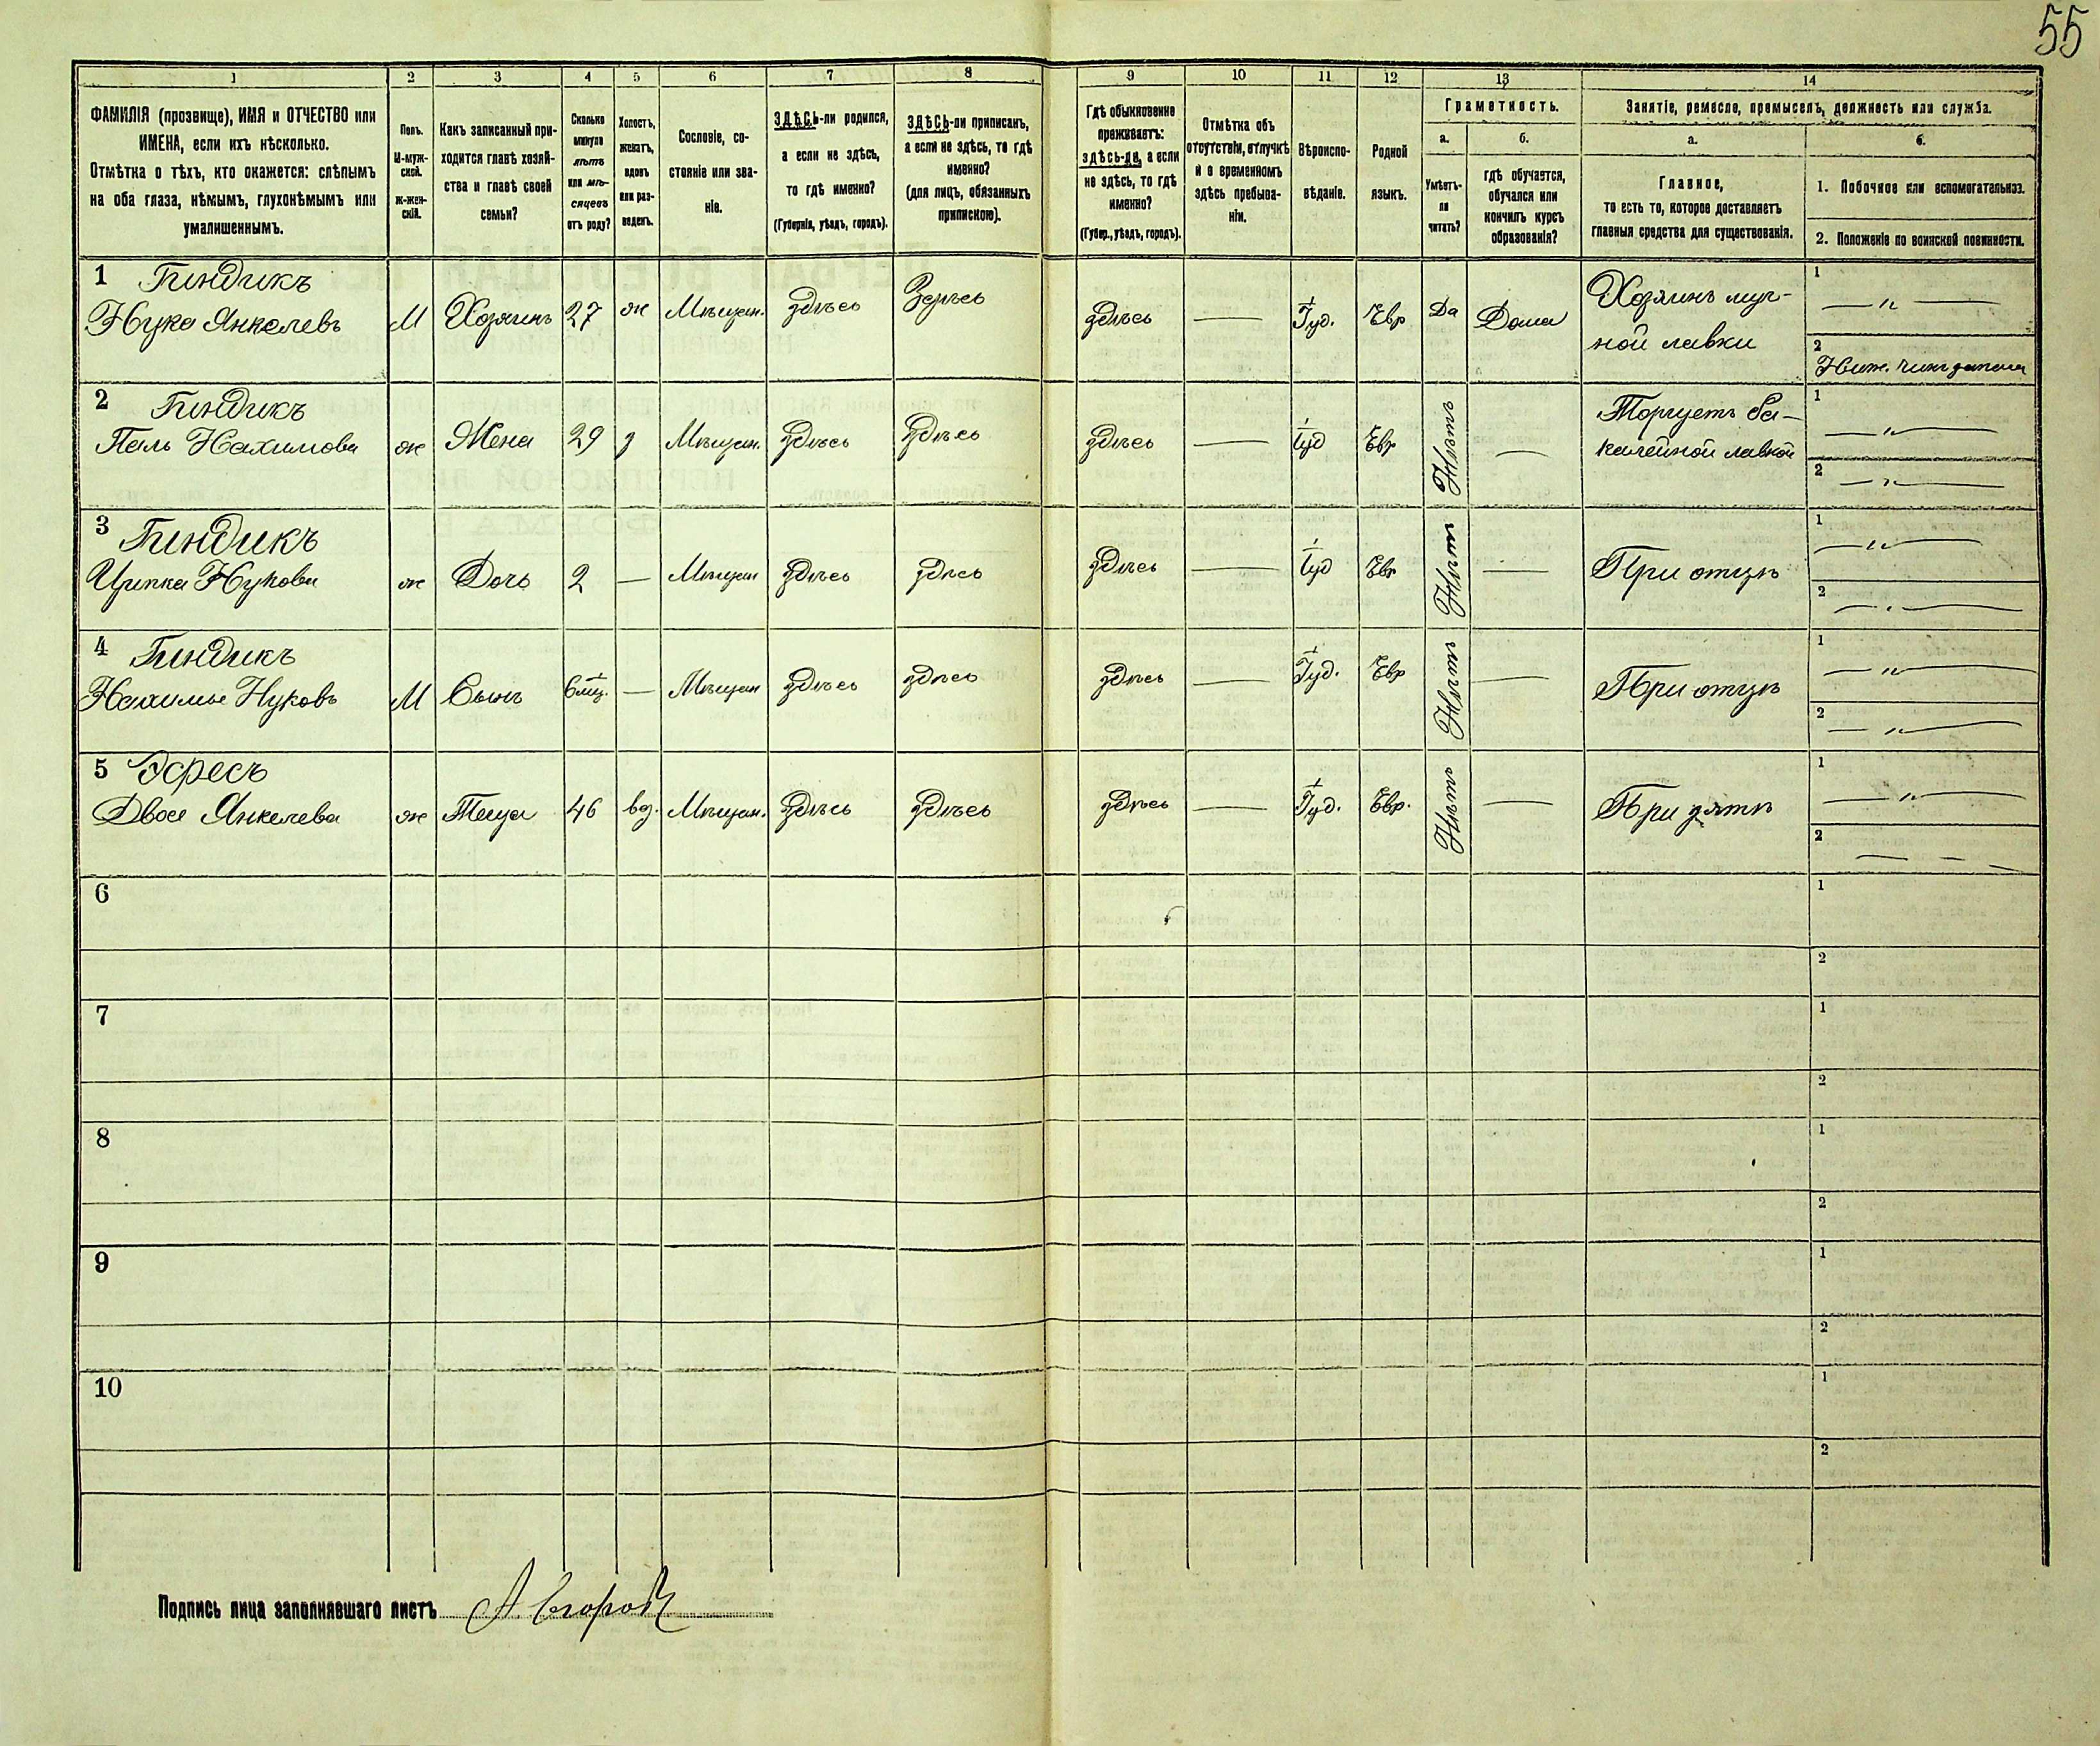 55
1 2 3 4 5 6 7 8 9 10 11 12 13 14
ФАМИЛІЯ (прозвище), ИМЯ и ОТЧЕСТВО или
ИМЕНА, если ихъ нѣсколько.
Отмѣтка о тѣхъ, кто окажется: слѣпымъ
на оба глаза, нѣмымъ, глухонѣмымъ или
умалишеннымъ.
Полъ.
М-муж-
ской.
ж-жен-
скій.
Какъ записанный при-
ходится главѣ хозяй-
ства и главѣ своей
семьи?
Сколько
минуло
лѣтъ
или мѣ-
сяцевъ
отъ роду?
Холостъ,
женатъ,
вдовъ
или раз-
веденъ.
Сословіе, со-
стояніе или зва-
ніе.
ЗДѢСЬ-ли родился,
а если не здѣсь,
то гдѣ именно?
(Губернія, уѣздъ, городъ).
ЗДѢСЬ-ли приписанъ,
а если не здѣсь, то гдѣ
именно?
(для лицъ, обязанныхъ
припискою).
Гдѣ обыкновенно
проживаетъ:
здѣсь-ли, а если
не здѣсь, то гдѣ
именно?
(Губер., уѣздъ, городъ).
Отмѣтка объ
отсутствіи, отлучкѣ
и о временномъ
здѣсь пребыва-
ніи.
Вѣроиспо-
вѣданіе.
Родной
языкъ.
Грамотность.
а.
Умѣетъ-
ли
читать?
б.
гдѣ обучается,
обучался или
кончилъ курсъ
образованія?
Занятіе, ремесло, промыселъ, должность или служба.
а.
Главное,
то есть то, которое доставляетъ
главныя средства для существованія.
б.
1. Побочное или вспомогательное.
2. Положеніе по воинской повинности.
1 Гиндикъ
Нука Янкелевъ М Хозяинъ 27 ж Мѣщан. здѣсь Здѣсь здѣсь — Іуд. Евр Да Дома Хозяинъ муч-
ной лавки
1 — " —
2 Ниж. чинъ запаса
2 Гиндикъ
Песль Нахимова ж Жена 29 з Мѣщан. Здѣсь Здѣсь здѣсь — Іуд Евр Нѣтъ — Торгуетъ ба-
калейной лавкой
1 — " —
2 — " —
3 Гиндикъ
Ципка Нукова ж Дочь 2 — Мѣщан здѣсь здѣсь здѣсь — Іуд Евр Нѣтъ — При отцѣ
1 — " —
2 — " —
4 Гиндикъ
Нахимъ Нуковъ М Сынъ 6 мѣс. — Мѣщан здѣсь здѣсь здѣсь — Іуд. Евр Нѣтъ — При отцѣ
1 — " —
2 — " —
5 Эфресъ
Двося Янкелева ж Теща 46 вд. Мѣщан. Здѣсь здѣсь здѣсь — Іуд. Евр. Нѣтъ — При зятѣ
1 — " —
2 — — —
6 1
2
7 1
2
8 1
2
9 1
2
10 1
2
Подпись лица заполнявшаго листъ